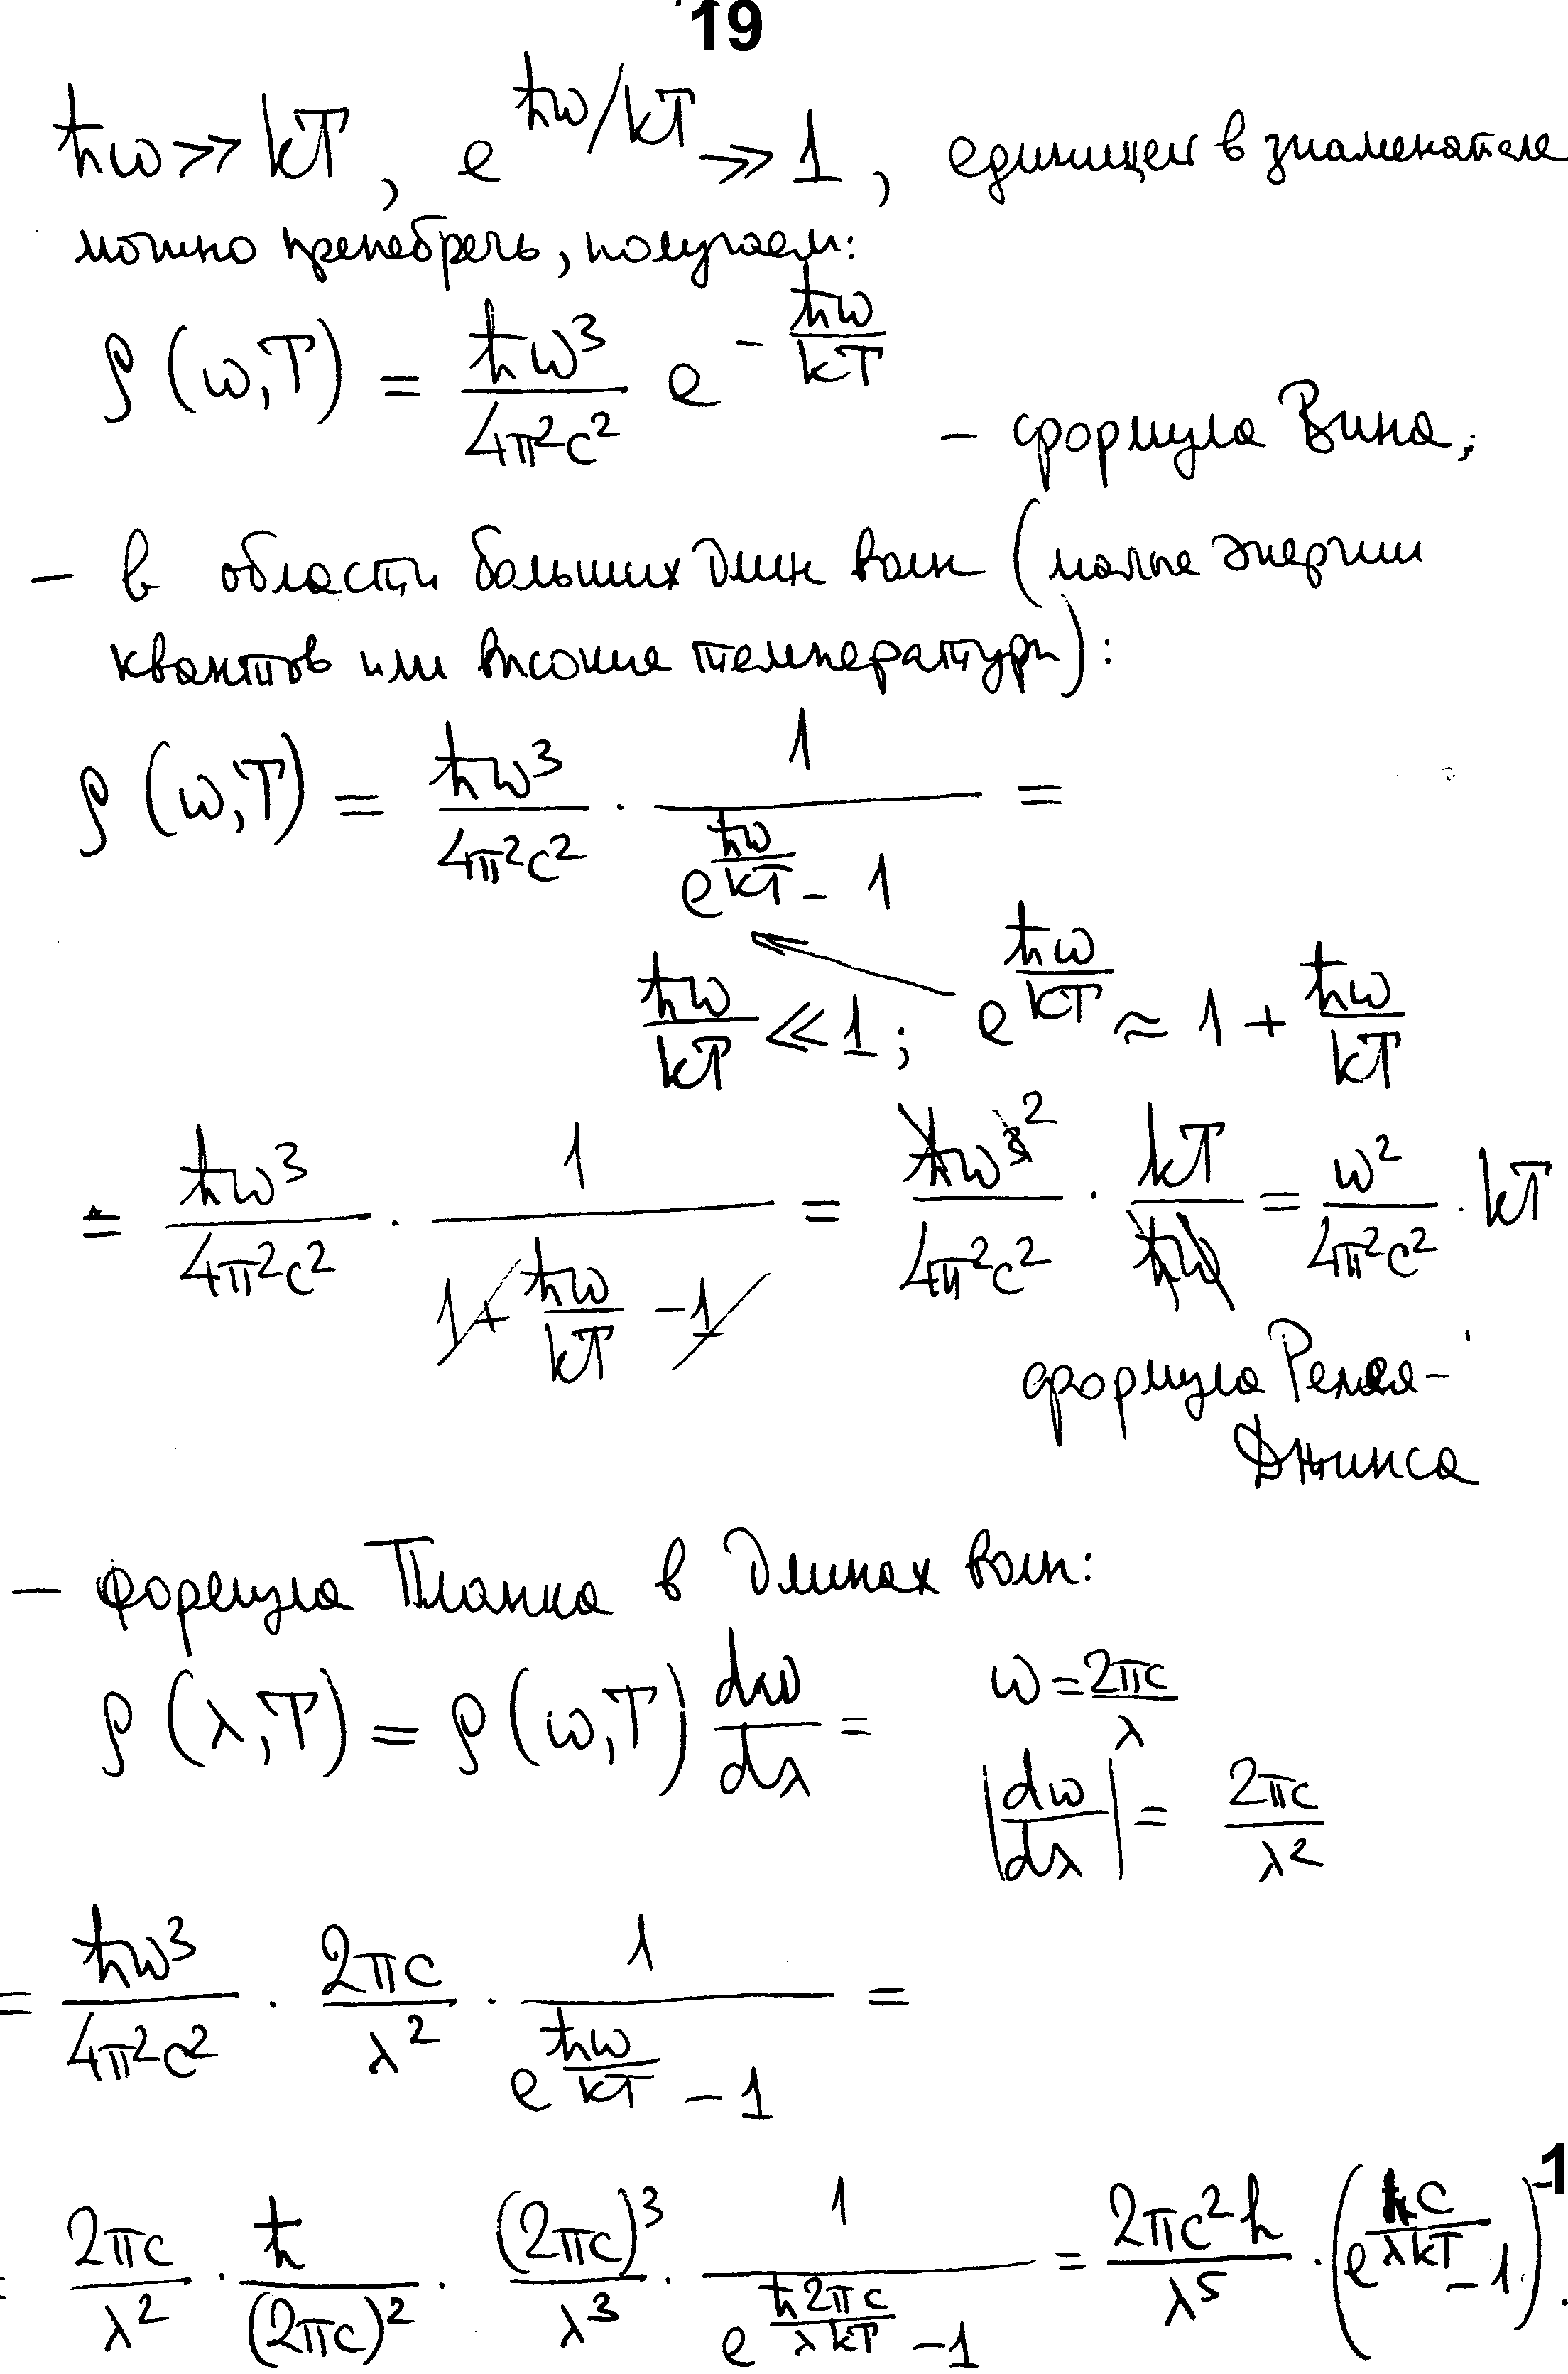 19
ħω >> kT, e^{ħω/kT} >> 1, единицей в знаменателе
можно пренебречь, получаем:
ρ(ω,T) = \frac{ħω^3}{4π^2c^2} e^{-\frac{ħω}{kT}} – формула Вина;
– в области больших длин волн (малые энергии
квантов или высокие температуры):
ρ(ω,T) = \frac{ħω^3}{4π^2c^2} · \frac{1}{e^{\frac{ħω}{kT}} - 1} =
\frac{ħω}{kT} << 1; e^{\frac{ħω}{kT}} ≈ 1 + \frac{ħω}{kT}
= \frac{ħω^3}{4π^2c^2} · \frac{1}{1 + \frac{ħω}{kT} - 1} = \frac{ħω^{3 2}}{4π^2c^2} · \frac{kT}{ħω} = \frac{ω^2}{4π^2c^2} · kT
формула Релея-
Джинса
– формула Планка в длинах волн:
ρ(λ,T) = ρ(ω,T) \frac{dω}{dλ} = ω = \frac{2πc}{λ}
|\frac{dω}{dλ}| = \frac{2πc}{λ^2}
= \frac{ħω^3}{4π^2c^2} · \frac{2πc}{λ^2} · \frac{1}{e^{\frac{ħω}{kT}} - 1} =
= \frac{2πc}{λ^2} · \frac{ħ}{(2πc)^2} · \frac{(2πc)^3}{λ^3} · \frac{1}{e^{\frac{ħ2πc}{λkT}} - 1} = \frac{2πc^2h}{λ^5} · (e^{\frac{hc}{λkT}} - 1)^{-1}.